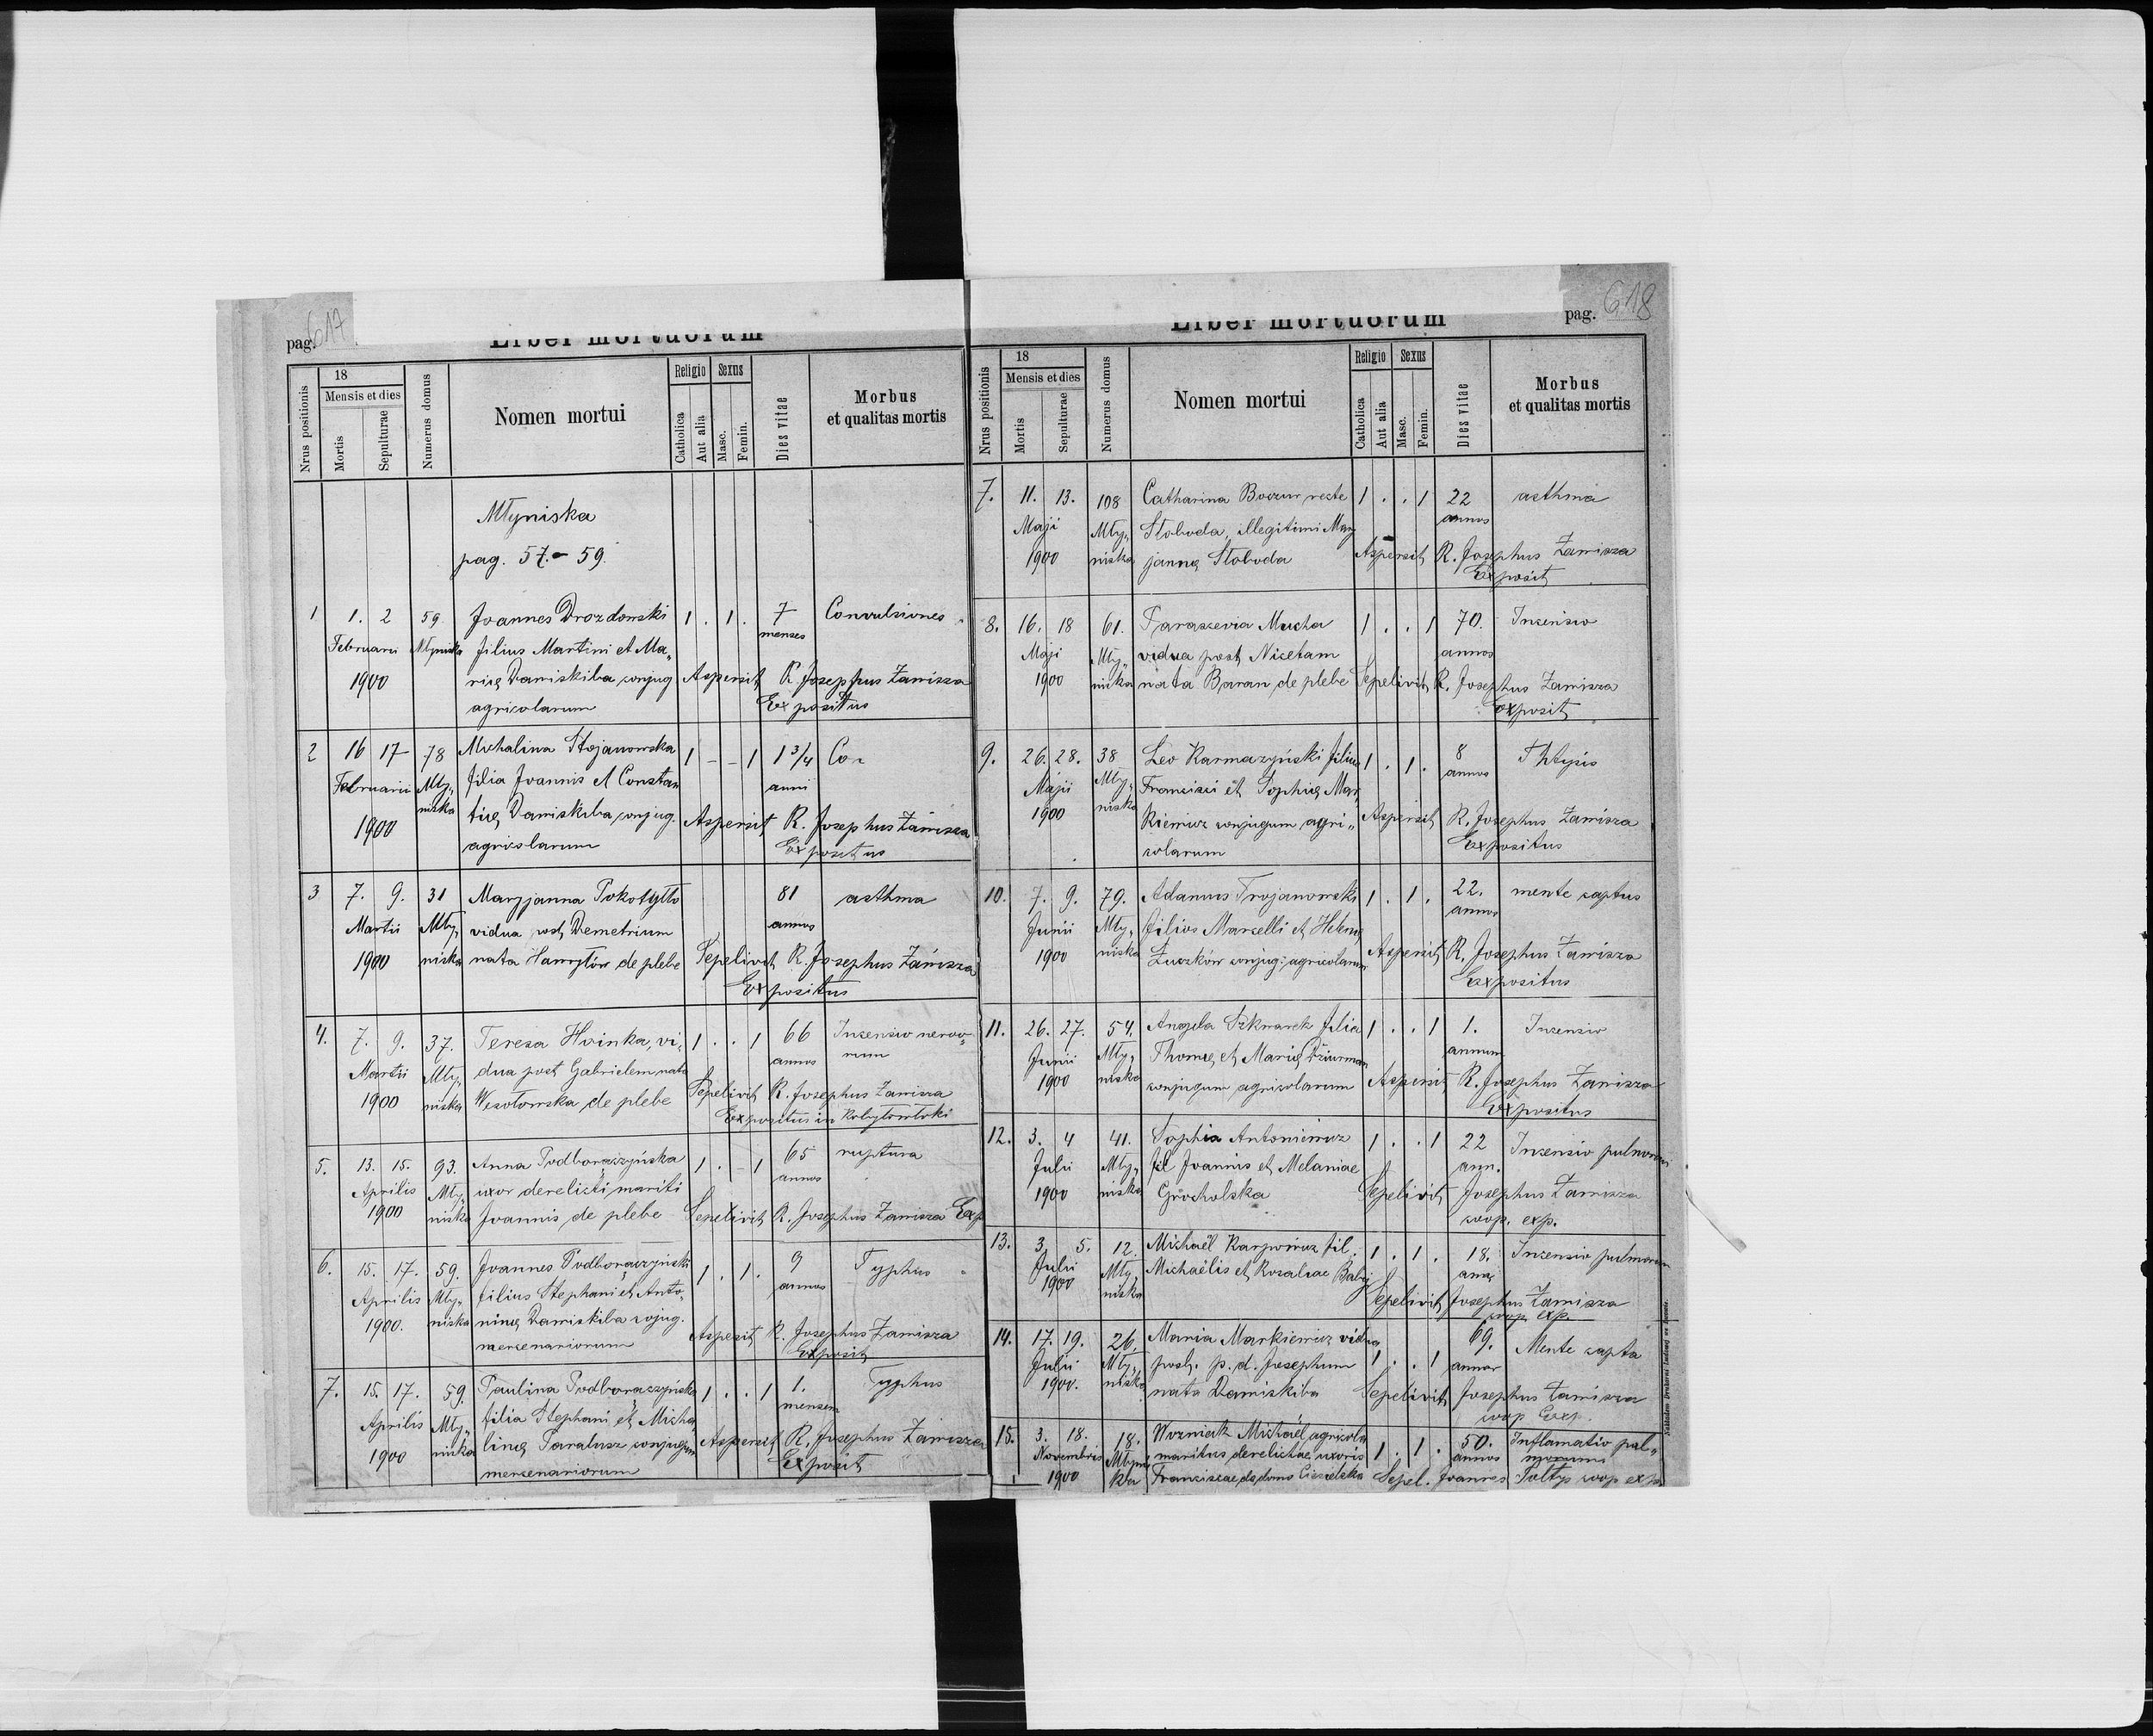 pag. 617.
Liber mortuorum
Nrus positionis
18
Mensis et dies
Mortis
Sepulturae
Numerus domus
Nomen mortui
Religio
Catholica
Aut alia
Sexus
Masc.
Femin.
Dies vitae
Morbus
et qualitas mortis
Młyniska
pag. 57.-59.
1 1. 2 59. Joannes Drozdowski 1 . 1 . 7 Convulsiones
Februarii Młyniska filius Martini et Ma„ menses
1900 rię Daniskiba conjug. Aspersit R. Josephus Zamisza
agricolarum Expositus
2 16 17 78 Michalina Stojanowska 1 - - 1 1 3/4 Co
Februarii Mły„ filia Joannis et Constan anni
1900 niska tię Daniskiba conjug. Aspersit R. Josephus Zamisza
agricolarum Expositus
3 7. 9. 31 Maryjanna Pokotyłło 81 asthma
Martii Mły„ vidua post Demetrium annos
1900 niska nata Hawryłów de plebe Sepelivit R. Josephus Zamisza
Expositus
4. 7. 9. 37. Teresa Hvinka, vi„ 1 . . 1 66 Incensio nervo„
Martii Mły„ dua post Gabrielem nata annos rum
1900 niska Wesołowska de plebe Sepelivit R. Josephus Zamisza
Expositus in Kobyłowłoki
5. 13. 15. 93. Anna Podboraczyńska 1 . - 1 65 ruptura
Aprilis Mły„ uxor derelicti mariti annos
1900 niska Joannis de plebe Sepelivit R. Josephus Zamisza Exp
6. 15. 17. 59. Joannes Podboraczyński 1 . 1 . 9 Typhus
Aprilis Mły„ filius Stephani et Anto„ annos
1900. niska ninę Daniskiba cojug. Aspersit R. Josephus Zamisza
mercenariorum Exposit
7. 15. 17. 59. Paulina Podboraczyńska 1 . . 1 1. Typhus
Aprilis Mły„ filia Stephani et Micha„ mensem
1900 niska linę Taralusz conjugum Aspersit R. Josephus Zamisza
mercenariorum Exposit
Liber mortuorum
pag. 618
Nrus positionis
18
Mensis et dies
Mortis
Sepulturae
Numerus domus
Nomen mortui
Religio
Catholica
Aut alia
Sexus
Masc.
Femin.
Dies vitae
Morbus
et qualitas mortis
7. 11. 13. 108 Catharina Boczur recte 1 . . 1 22 asthma
Maji Mły„ Słoboda, illegitimi Mary annos
1900 niska jannę Słoboda Aspersit R. Josephus Zamisza
Exposit
8. 16. 18 61. Paraszevia Mucha 1 . . 1 70. Incensio
Maji Mły„ vidua post Nicetam annos
1900 niska nata Baran de plebe Sepelivit R. Josephus Zamisza
Exposit
9. 26. 28. 38 Leo Karmazyński filius 1 . 1 . 8 Phtysis
Maji Mły„ Francisci et Sophię Mar„ annos
1900 niska kiewicz conjugum agri„ Aspersit R. Josephus Zamisza
colarum Expositus
10. 7. 9. 79. Adamus Trojanowski 1 . 1 . 22. mente captus
Junii Mły„ filius Marcelli et Helenę annos
1900 niska Zuczków conjug: agricolarum Aspersit R. Josephus Zamisza
Expositus
11. 26. 27. 54. Angela Szkwarek filia 1 . . 1 1. Incensio
Junii Mły„ Thomę et Marię Dziurman annum
1900 niska conjugum agricolarum Aspersit R. Josephus Zamisza
Expositus
12. 3. 4 41. Sophia Antoniewicz 1 . . 1 22 Incensio pulmonum
Julii Mły„ fil Joannis et Melaniae ann.
1900 niska Grocholska Sepelivit Josephus Zamisza
coop. exp.
13. 3. 5. 12. Michaël Karpowicz fil. 1 . 1 . 18. Incensio pulmonum
Julii Mły„ Michaëlis et Rosaliae Babij
1900 niska Sepelivit Josephus Zamisza
coop. exp.
14. 17. 19. 26. Maria Markiewicz vidua 69. Mente capta
Julii Mły„ post. p. d. Josephum 1 . . 1 annor
1900. niska nata Daniskiba Sepelivit Josephus Zamisza
coop Exp.
15. 3. 18. 18. Wozniak Michaël agricola 1 . 1 . 50. Inflamatio pul„
Novembris Młynis maritus derelictae uxoris annos monum
1900 ka Franciscae de domo Ciesielska Sepel. Joannes Sołtys coop. exp.
Nakładem Drukarni Ludowej we Lwowie.